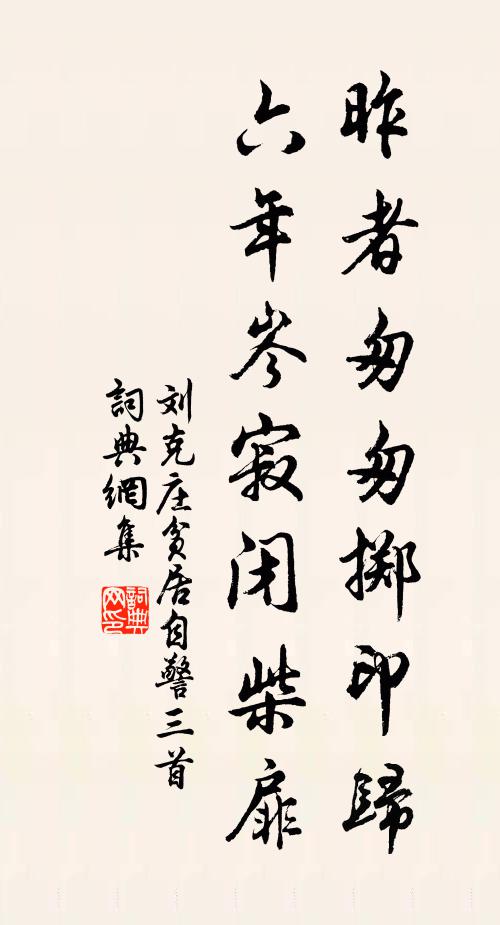 昨者匆匆掷印歸
六年岑寂闭柴扉
刘克庄贫居自警三首
詞典網集
詞典网印